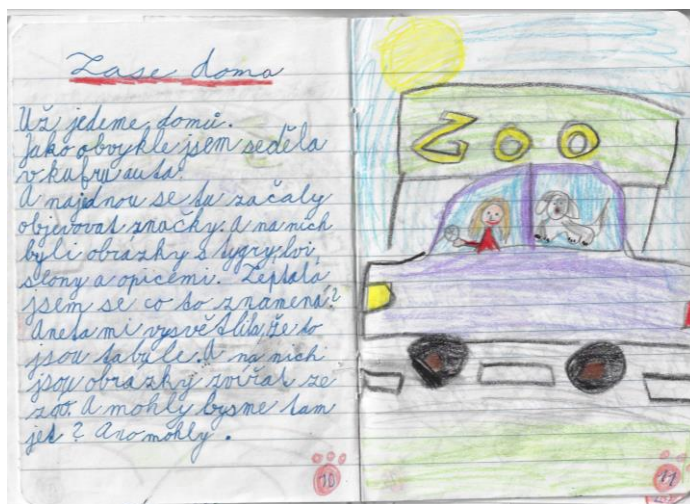 Zase doma
Už jedeme domů.
Jako obvykle jsem seděla
v kufru auta.
A najednou se tu začaly
objevovat značky. A na nich
byli obrázky s tygry, lvi,
slony a opicemi. Zeptala
jsem se co to znamená?
Aneta mi vysvětlila, že to
jsou tabule. A na nich
jsou obrázky zvířat ze
zoo. A mohly bysme tam
jet? Ano mohly.
10
ZOO
11